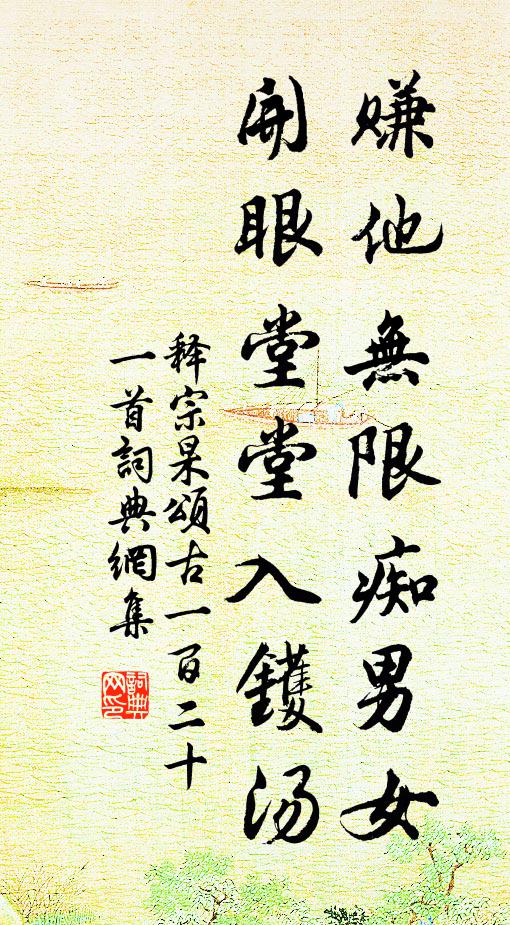 赚他無限痴男女
開眼堂堂入鑊湯
释宗杲頌古一百二十
一首詞典網集
詞典网印